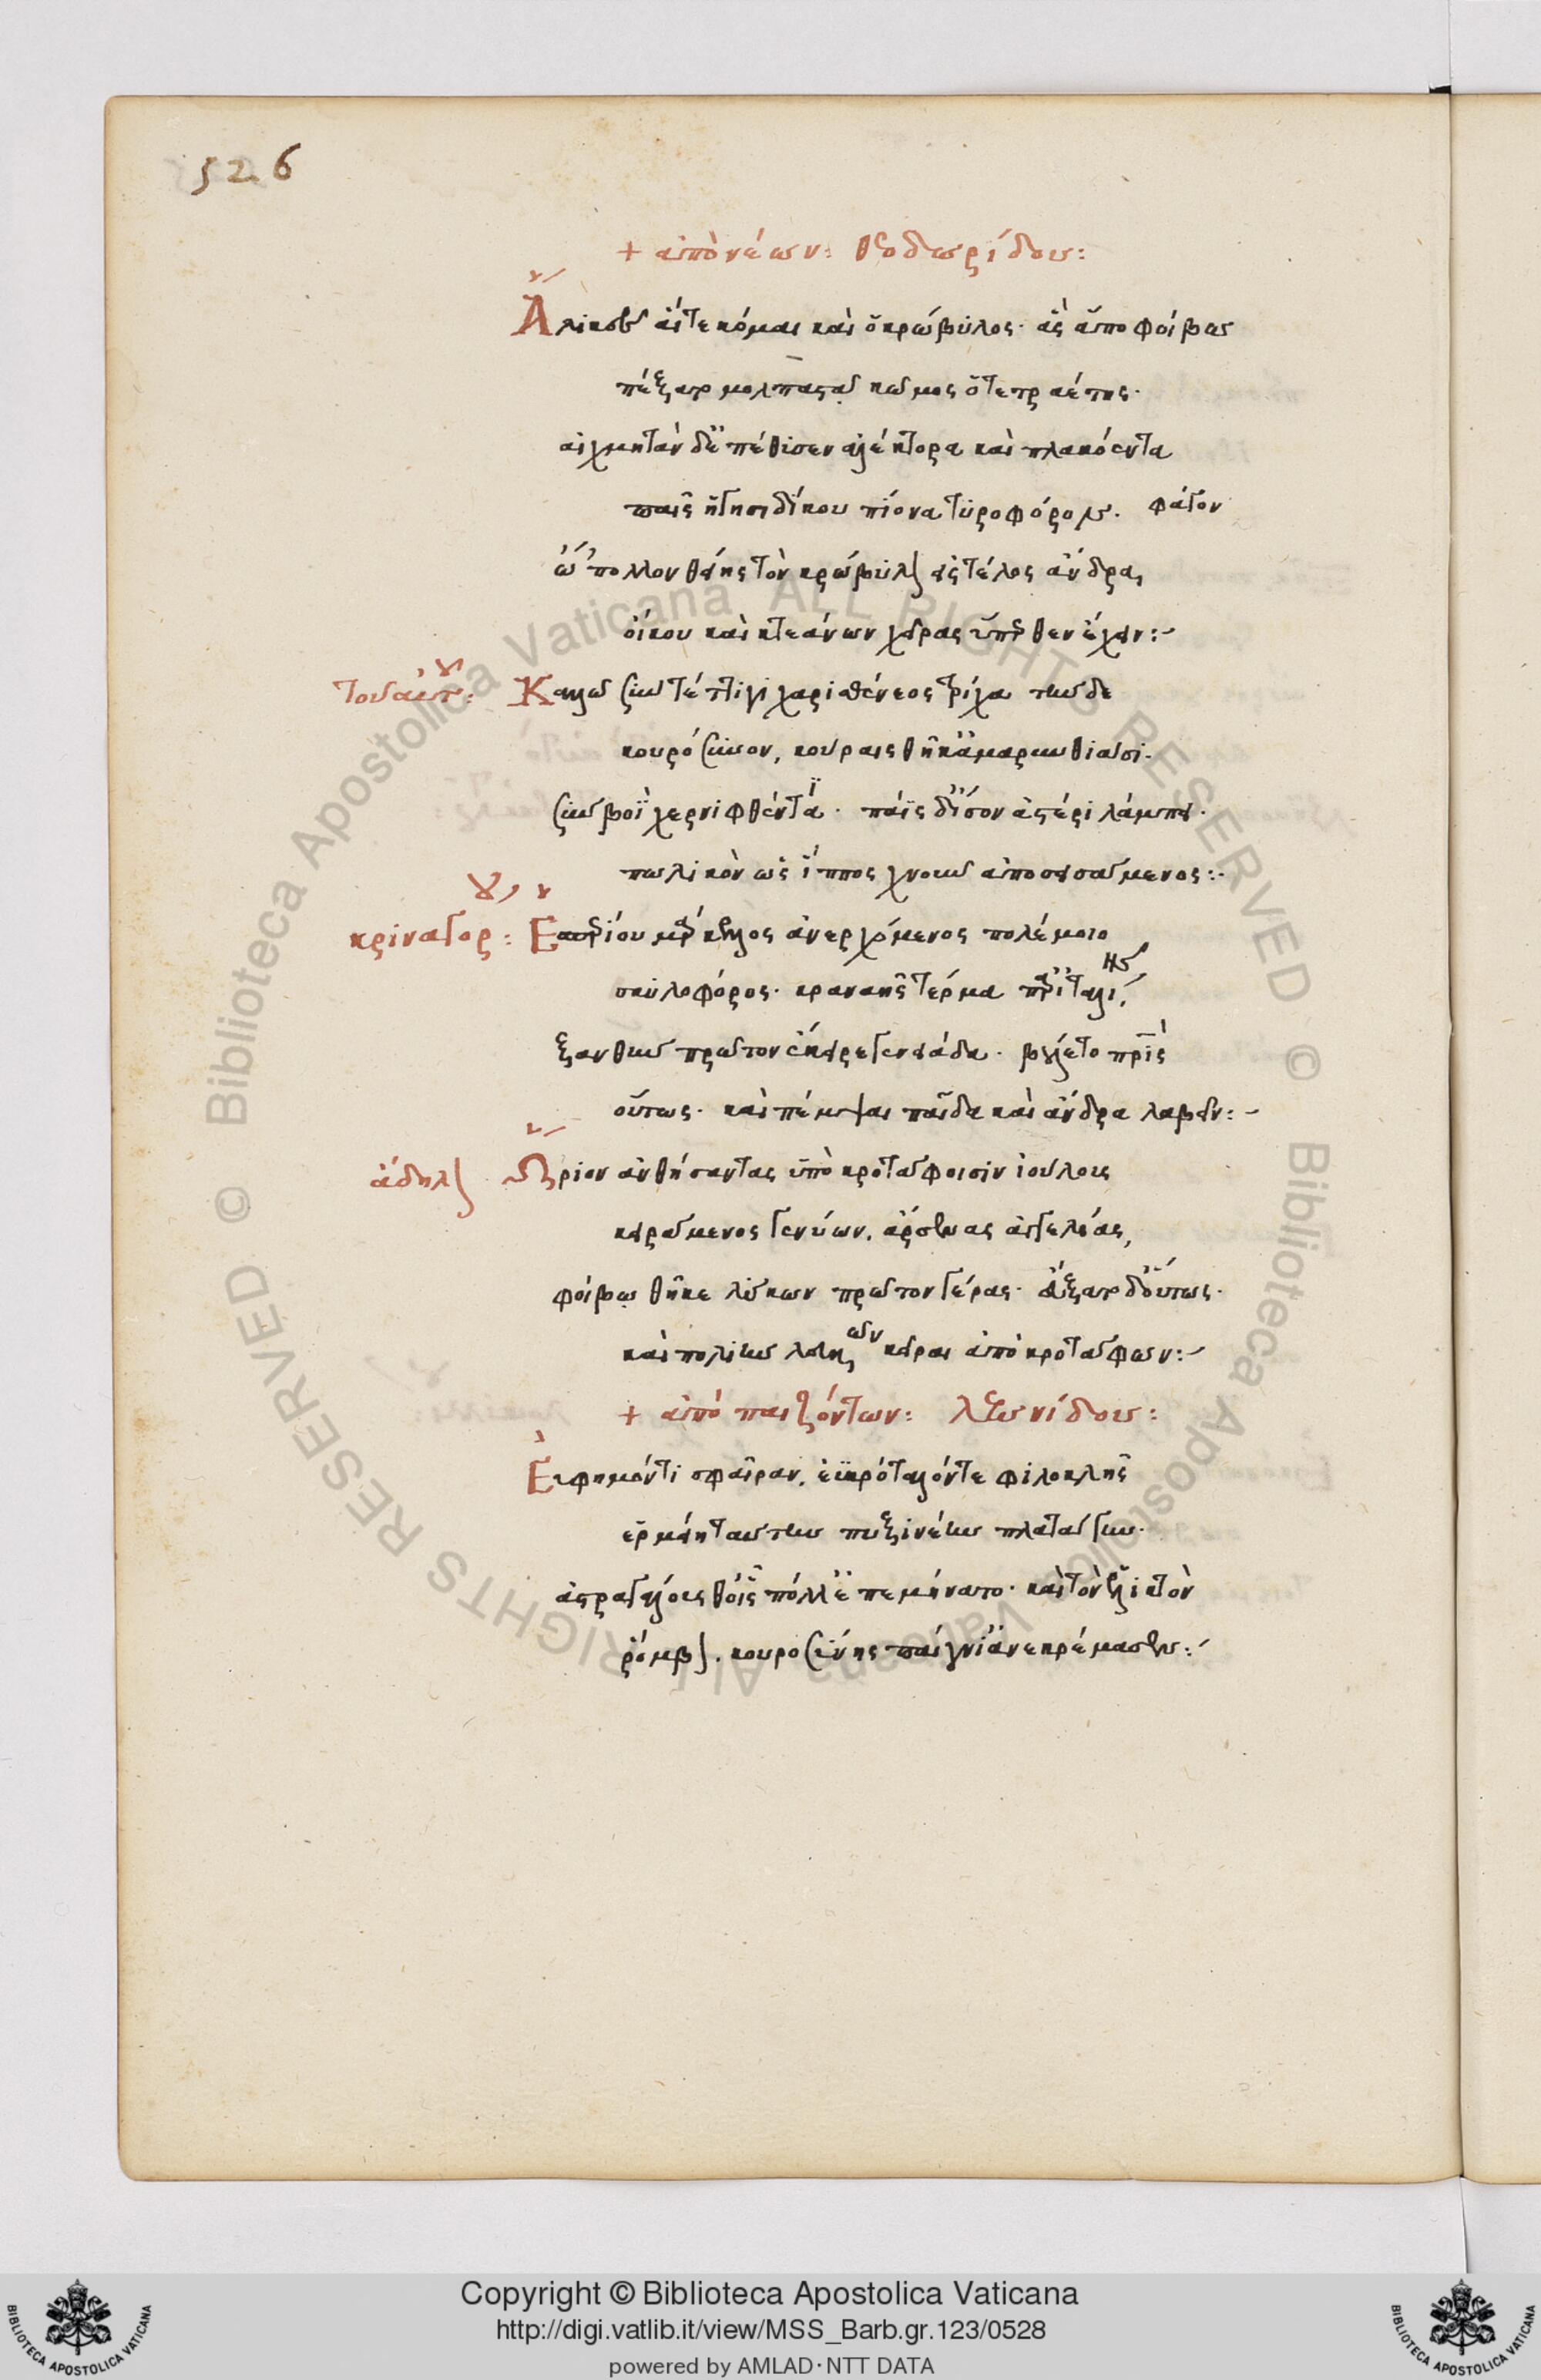 526
+ ἀπὸ νέων: θεοδωρίδου:
Ἅλικες αἵ τε κόμαι καὶ ὁ κρωβύλος· ἃς ἀπὸ φοίβω
πέξατο μολπαστᾷ κῶρος ὁ τετραέτης·
αἰχμητὰν δ' ἐπέθυσεν ἀλέκτορα καὶ πλακόεντα
παῖς ἡγησιδίκου πίονα τυροφόρον. φάγον
ὤπολλον θείης τὸν κρωβύλον εἰς τέλος ἄνδρα,
οἴκου καὶ κτεάνων χεῖρας ὕπερθεν ἔχειν:-
τοῦ αὐτοῦ: Καλῷ σὺν τέττιγι χαρισθένεος τρίχα τήνδε
κουρόσυνον, κούραις θῆκ' ἀμαρυνθιάσι·
σὺν βοῒ χερνιφθέντα· πάϊς δ' ἴσον ἀστέρι λάμπει·
πωλικὸν ὡς ἵππος χνοῦν ἀποσεισάμενος:-
κριναγόρου: Ἑσπερίου μάρκελλος ἀνερχόμενος πολέμοιο
σκυλοφόρος· κραναῆς τέρμα παρ' ἰταλίης,
ξανθὴν πρῶτον ἔκειρε γενειάδα· βούλετο πατρὶς
οὕτως· καὶ πέμψαι παῖδα καὶ ἄνδρα λαβεῖν:-
ἄδηλον Ὥριον ἀνθήσαντας ὑπὸ κροτάφοισιν ἰούλους
κειράμενος γενύων, ἄρσενας ἀγγελίας,
φοίβῳ θῆκε λύκων πρῶτον γέρας· εὔξατο δ' οὕτως·
καὶ πολιὴν λευκῶν κεῖραι ἀπὸ κροτάφων:-
+ ἀπὸ παιζόντων: λεωνίδου:
Εὔφημόν τοι σφαῖραν, ἐϋκρόταλόν τε φιλοκλῆς
ἑρμείῃ ταύτην πυξινέην πλατάγην·
ἀστραγάλους θ' οἷς πόλλ' ἐπεμήνατο· καὶ τὸν ἑλικτὸν
ῥόμβον, κουροσύνης παίγνι' ἀνεκρέμασεν:-
Copyright © Biblioteca Apostolica Vaticana
http://digi.vatlib.it/view/MSS_Barb.gr.123/0528
powered by AMLAD·NTT DATA